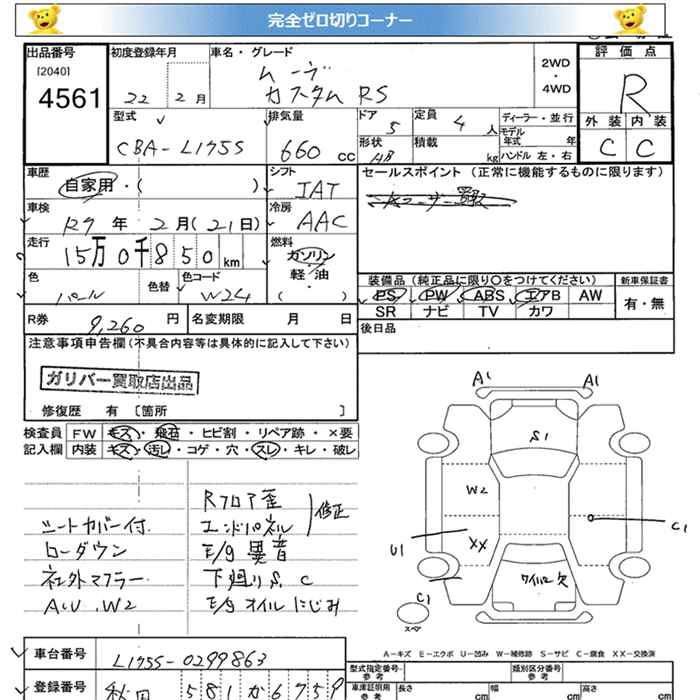 完全ゼロ切りコーナー
出品番号 初度登録年月 車名・グレード 評価点
[2040]
4561
22 2月
ムーヴ
カスタム RS
2WD
・
4WD
R
型式 排気量 ドア 定員 ディーラー・並行
5 4 人
モデル年式 年
外装 内装
CBA-L175S 660 CC
形状 積載
HB kg
ハンドル 左・右
C C
車歴 シフト セールスポイント (正常に機能するものに限ります)
自家用・( ) IAT
車検 冷房
R7 年 2月(21日) AAC
走行 燃料
15万0千850km
ガソリン・
軽・油
・( )
色 色替 色コード
パール W24
装備品 (純正品に限り○をつけてください) 新車保証書
PS PW ABS エアB AW 有・無
SR ナビ TV カワ
R券 9,260 円 名変期限 月 日
後日品
注意事項申告欄 (不具合内容等は具体的に記入して下さい)
ガリバー買取店出品
修復歴 有 [箇所 ]
検査員 FW キズ・飛石・ヒビ割・リペア跡・×要
記入欄 内装 キズ・汚レ・コゲ・穴・スレ・キレ・破レ
A1 A1
S1
W2
C1
U1
XX
ワイパー欠
C1
スペア
Rフロア歪
シートカバー付 エンドパネル 修正
ローダウン E/g異音
社外マフラー 下廻りS、C
A、U、W2 E/gオイルにじみ
A-キズ E-エクボ U-凹み W-補修跡 S-サビ C-腐食 XX-交換済
車台番号 L175S-0299863
型式指定番号 参考 類別区分番号 参考
登録番号 秋田 581 か 6759
車庫証明用 参考 長さ cm 幅 cm 高さ cm